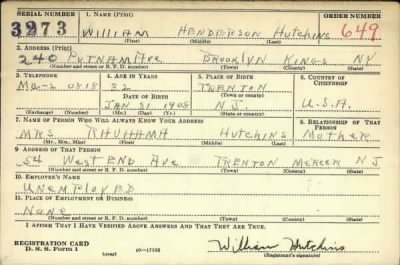 SERIAL NUMBER 1. NAME (Print) ORDER NUMBER
3273 WILLIAM HENDERSON HUTCHINS 649
(First) (Middle) (Last)
2. ADDRESS (Print)
240 PUTNAM AVE BROOKLYN KINGS NY
(Number and street or R. F. D. number) (Town) (County) (State)
3. TELEPHONE 4. AGE IN YEARS 5. PLACE OF BIRTH 6. COUNTRY OF CITIZENSHIP
MA-2 0818 32 TRENTON
(Town or county)
DATE OF BIRTH
JAN 31 1908 N.J. U.S.A.
(Exchange) (Number) (Mo.) (Day) (Yr.) (State or country)
7. NAME OF PERSON WHO WILL ALWAYS KNOW YOUR ADDRESS 8. RELATIONSHIP OF THAT PERSON
MRS RHUHAMA HUTCHINS MOTHER
(Mr., Mrs., Miss) (First) (Middle) (Last)
9. ADDRESS OF THAT PERSON
54 WEST END AVE TRENTON MERCER NJ
(Number and street or R. F. D. number) (Town) (County) (State)
10. EMPLOYER'S NAME
UNEMPLOYED
11. PLACE OF EMPLOYMENT OR BUSINESS
NONE
(Number and street or R. F. D. number) (Town) (County) (State)
I AFFIRM THAT I HAVE VERIFIED ABOVE ANSWERS AND THAT THEY ARE TRUE.
REGISTRATION CARD
D. S. S. Form 1 (over) 16-17105 William Hutchins
(Registrant's signature)